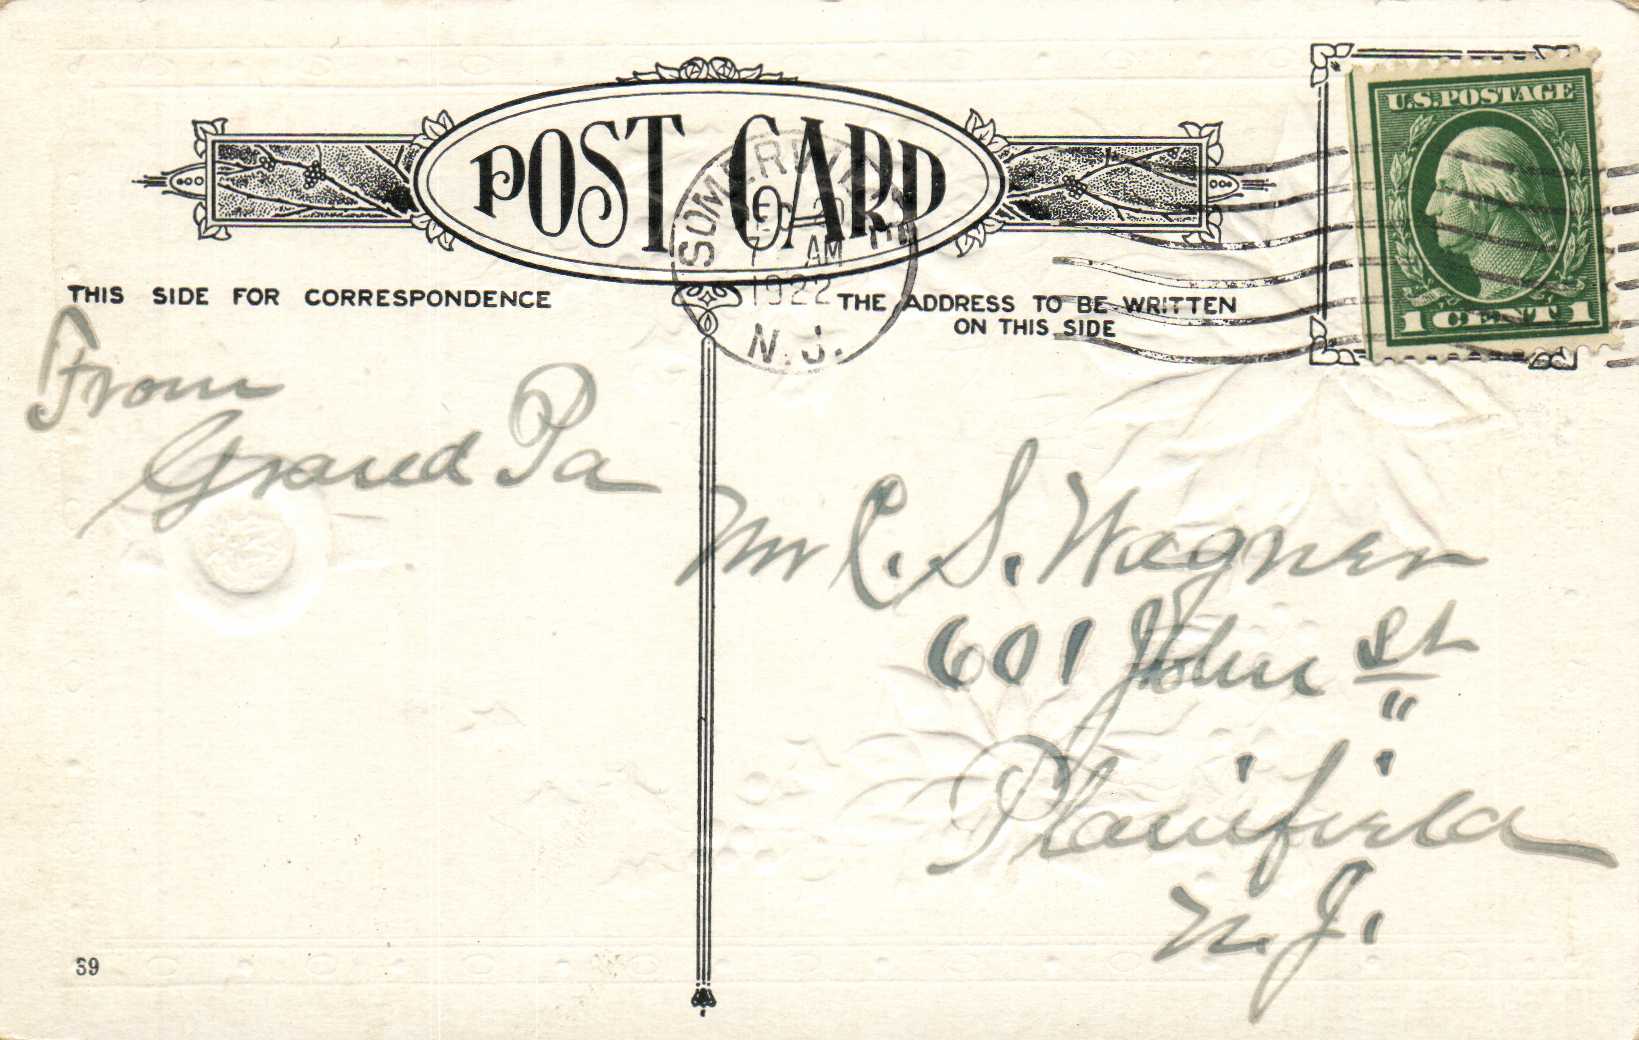 POST CARD
SOMERVILLE
DEC 20
7 AM
1922
N.J.
U.S. POSTAGE
1 CENT 1
THIS SIDE FOR CORRESPONDENCE
THE ADDRESS TO BE WRITTEN
ON THIS SIDE
From
Grand Pa
Mr C. S. Wagner
601 John St
"
Plainfield
N. J.
39